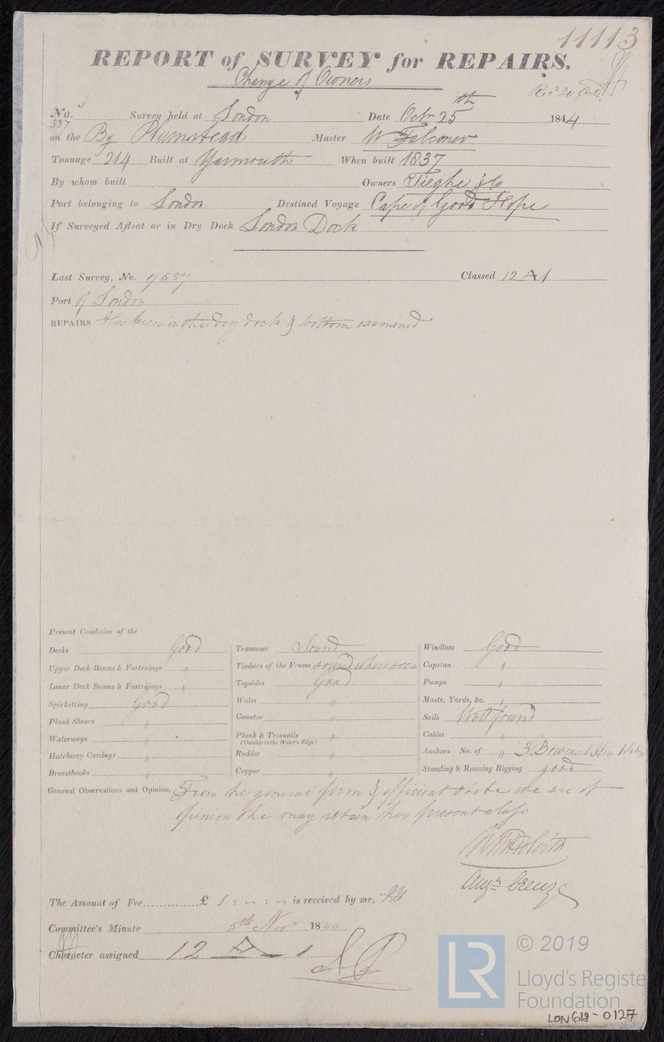 11113
REPORT of SURVEY for REPAIRS.
Change of Owners
No. 337 Survey held at London Date Octr 25th 1844
on the Bg Master W Falconer
Tonnage 214 Built at Yarmouth When built 1837
By whom built Owners & Co
Port belonging to London Destined Voyage Cape of Good Hope
If Surveyed Afloat or in Dry Dock London Dock
Last Survey, No. 9657 Classed 12 A 1
Port of London
REPAIRS Has been in the dry dock & bottom examined
Present Condition of the
Decks Good
Upper Deck Beams & Fastenings "
Lower Deck Beams & Fastenings "
Spirketting Good
Plank Shears "
Waterways "
Hatchway Comings "
Breasthooks "
Transoms Sound
Timbers of the Frame sound where seen
Topsides Good
Wales "
Counter "
Plank & Treenails "
(Outside to the Water's Edge)
Rudder "
Copper "
Windlass Good
Capstan "
Pumps "
Masts, Yards, &c. "
Sails Well found
Cables "
Anchors No. of " 3 Bowers 1 Stm 1
Standing & Running Rigging good
General Observations and Opinion, From her general firm & efficient state we are of
opinion she may retain her present class
Augn Creuze
The Amount of Fee............£ 1 : - : - is received by me,
Committee's Minute 5th Nov 1844
Character assigned 12 A 1
LR © 2019
Lloyd's Register
Foundation
LON618-0127